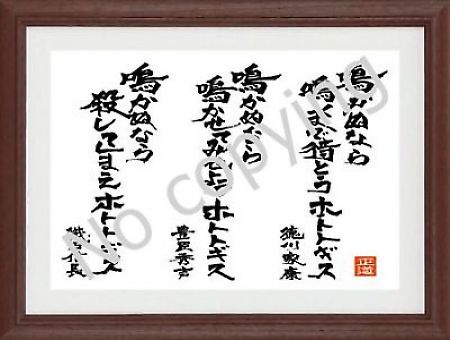 鳴かぬなら
鳴くまで待とうホトトギス
徳川家康
鳴かぬなら
鳴かせてみよう ホトトギス
豊臣秀吉
鳴かぬなら
殺してしまえ ホトトギス
織田信長
No copying